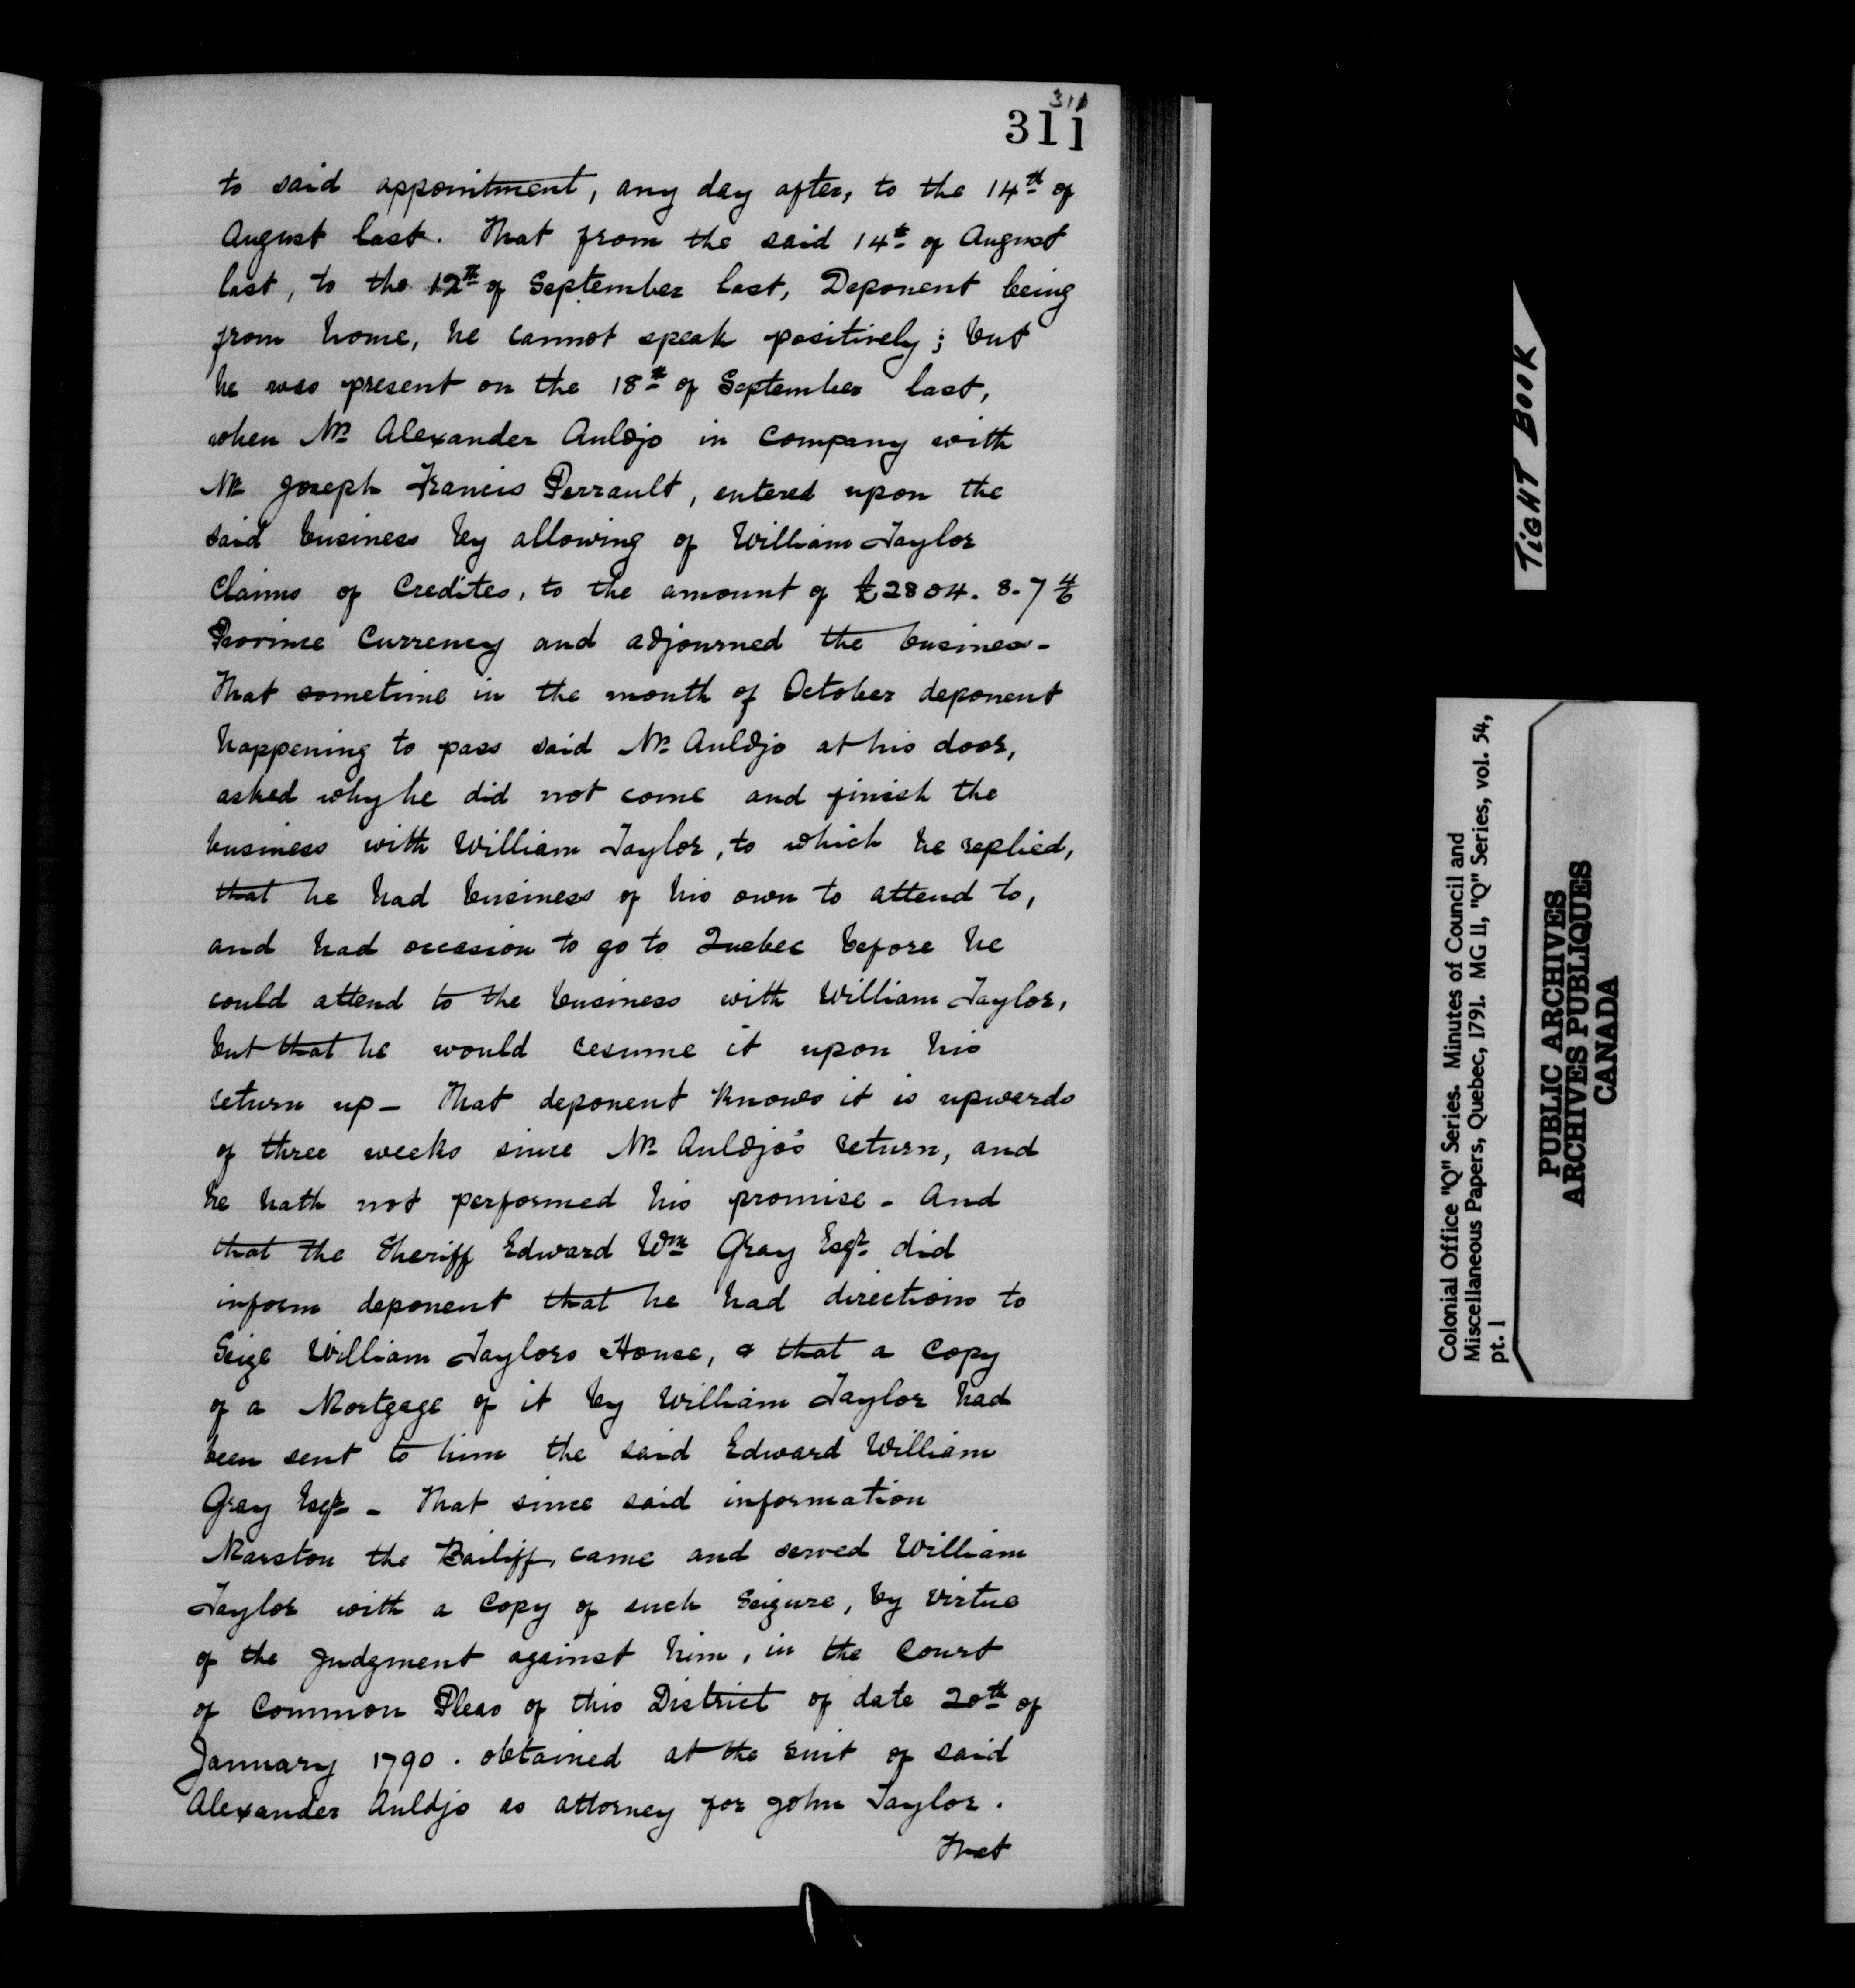 311
311
to said appointment, any day after, to the 14th of
August last. That from the said 14th of August
last, to the 12th of September last, Deponent being
from home, he cannot speak positively; but
he was present on the 18th of September last,
when Mr Alexander Auldjo in Company with
Mr Joseph Francis Perrault, entered upon the
said business by allowing of William Taylor
Claims of Credites, to the amount of £2804. 8. 7 4/6
Province Currency and adjourned the business-
That sometime in the month of October deponent
happening to pass said Mr Auldjo at his door,
asked why he did not come and finish the
business with William Taylor, to which he replied,
that he had business of his own to attend to,
and had occasion to go to Quebec before he
could attend to the business with William Taylor,
but that he would resume it upon his
return up - That deponent knows it is upwards
of three weeks since Mr Auldjo's return, and
he hath not performed his promise - And
that the Sheriff Edward Wm Gray Esqr did
inform deponent that he had directions to
Seize William Taylors House, & that a Copy
of a Mortgage of it by William Taylor had
been sent to him the said Edward William
Gray Esqr - That since said information
Marston the Bailiff, came and served William
Taylor with a Copy of such Seizure, by virtue
of the Judgment against him, in the Court
of Common Pleas of this District of date 20th of
January 1790. obtained at the suit of said
Alexander Auldjo as attorney for John Taylor.
That
TIGHT BOOK
Colonial Office "Q" Series. Minutes of Council and
Miscellaneous Papers, Quebec, 1791. MG 11, "Q" Series, vol. 54,
pt. 1
PUBLIC ARCHIVES
ARCHIVES PUBLIQUES
CANADA